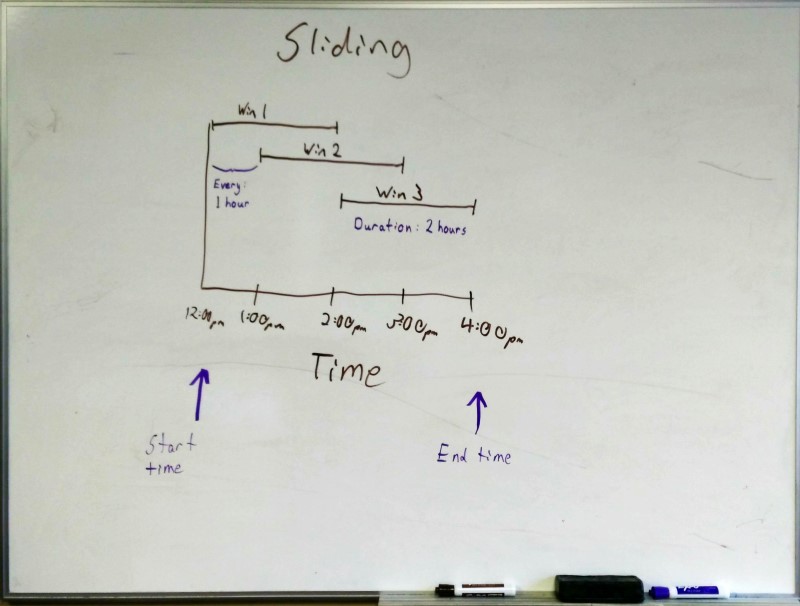 Sliding
Win 1
Win 2
Every:
1 hour
Win 3
Duration: 2 hours
12:00pm 1:00pm 2:00pm 3:00pm 4:00pm
Time
Start
time
End time